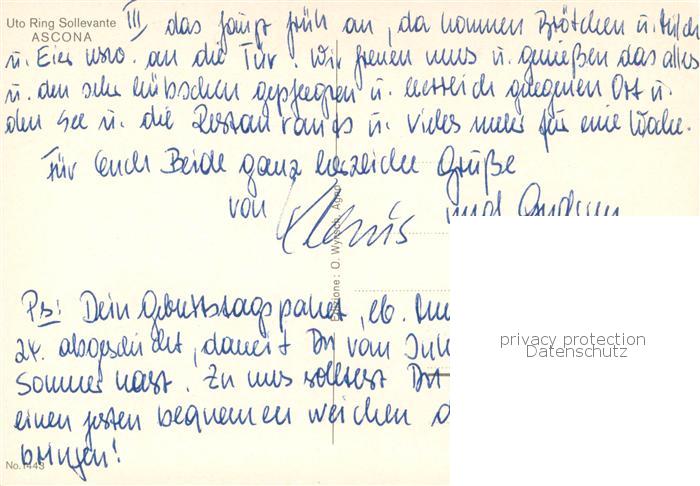 Uto Ring Sollevante
ASCONA
III das fängt früh an, da kommen Brötchen u. Milch
u. Eier usw. an die Tür. Wir freuen uns u. genießen das alles
u. den sehr hübschen gepflegten u. herrlich gelegenen Ort u.
den See u. die Restaurants u. vieles mehr für eine Woche.
Für Euch Beide ganz herzliche Grüße
von und
Edizione: O. Wyrsch, Agno
Ps: Dein Geburtstagspaket, lb.
24. abgeschickt, damit Du vom
Sommer hast. Zu uns solltest Du
einen festen bequemen weichen
bringen!
No. 1443
privacy protection
Datenschutz